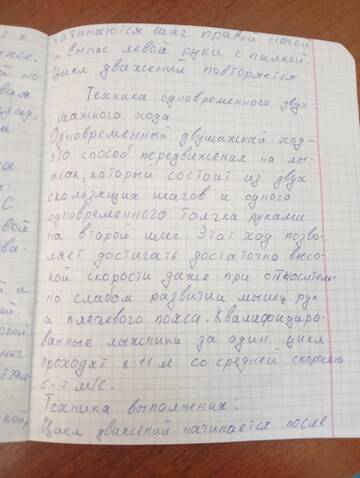 начинаются шаг правой ногой
и вынос левой руки с палкой.
Цикл движений повторяется
Техника одновременного двух-
шажного хода
Одновременный двушажный ход-
это способ передвижения на лы-
жах, который состоит из двух
скользящих шагов и одного
одновременного толчка руками
на второй шаг. Этот ход позво-
ляет достигать достаточно высо-
кой скорости даже при относитель-
но слабом развитии мышц рук
и плечевого пояса. Квалифициро-
ванные лыжники за один цикл
проходят 8-11 м со средней скоростью
5-7 м/с.
Техника выполнения:
Цикл движений начинается после